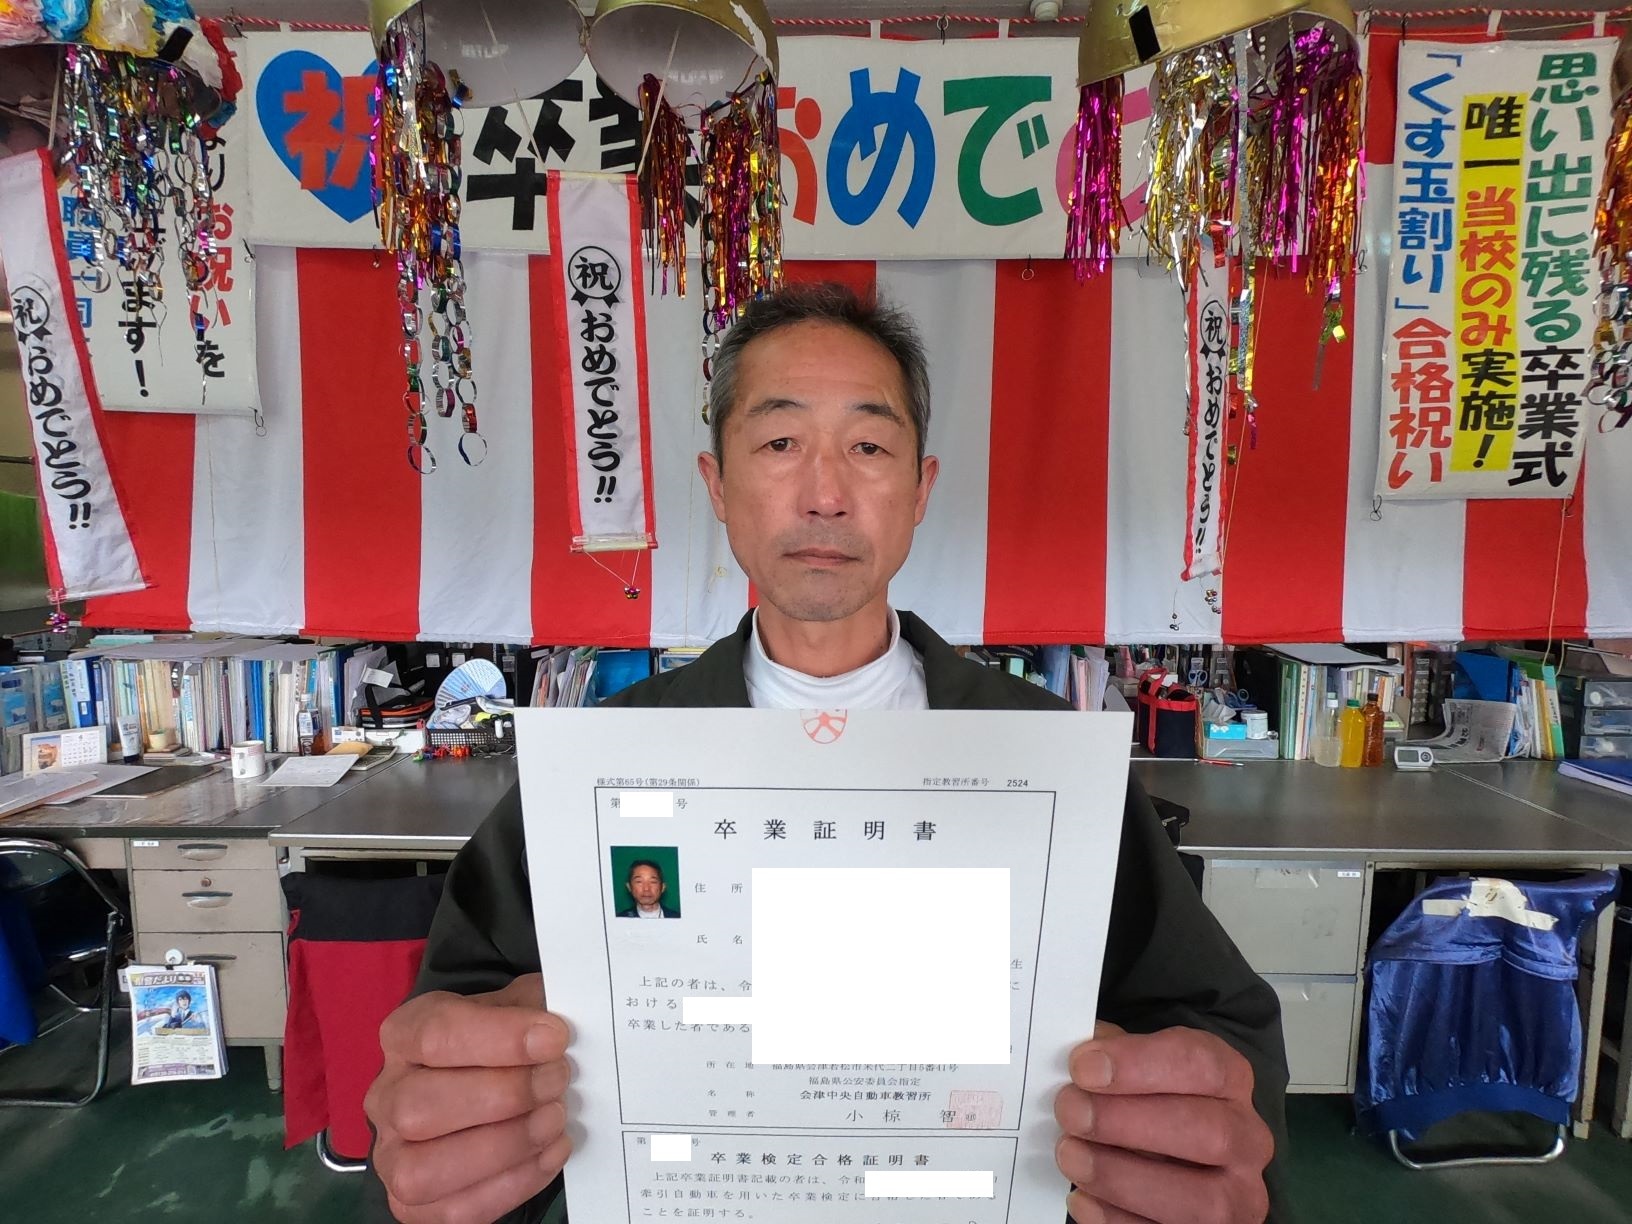 祝 卒業おめでと
お祝いを
職員一同
ます!
祝
おめでとう!!
祝
おめでとう!!
祝
おめでとう!!
思い出に残る卒業式
唯一当校のみ実施!
「くす玉割り」合格祝い
様式第65号(第29条関係)
指定教習所番号 2524
第 号
卒業証明書
住所
氏名
生
上記の者は、令
に
おける
卒業した者である
所在地 福島県会津若松市米代二丁目5番41号
福島県公安委員会指定
名称 会津中央自動車教習所
管理者 小椋 智
第 号
卒業検定合格証明書
上記卒業証明書記載の者は、令和
牽引自動車を用いた卒業検定に合格した者である
ことを証明する。